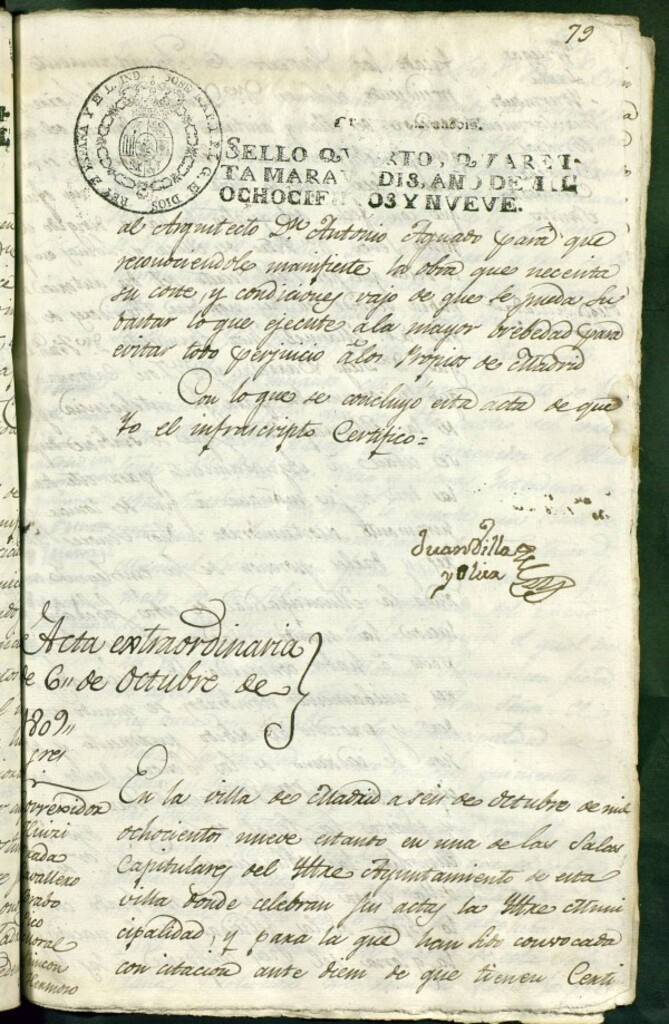 79
SELLO QVARTO, QVAREN-
TA MARAVEDIS, AÑO DE MIL
OCHOCIENTOS Y NVEVE.
al Arquitecto Dn Antonio Aguado para que
reconociendole manifieste la obra que necesita
su coste, y condiciones vajo de que se pueda su
bastar lo que ejecute a la mayor brebedad para
evitar todo perjuicio a los Propios de Madrid
Con lo que se concluyó esta acta de que
Yo el infrascripto Certifico=
Juan Villa
y Olier
Acta extraordinaria
de 6,, de Octubre de
1809,,
En la villa de Madrid a seis de Octubre de mil
ochocientos nueve estando en una de las Salas
Capitulares del Iltre Ayuntamiento de esta
villa donde celebran sus actas la Iltre Muni
cipalidad, y para la que han sido convocada
con citacion ante diem de que tienen Certi
orregidor
ada
avallero
rado
ico
moral
incon
Hermoso